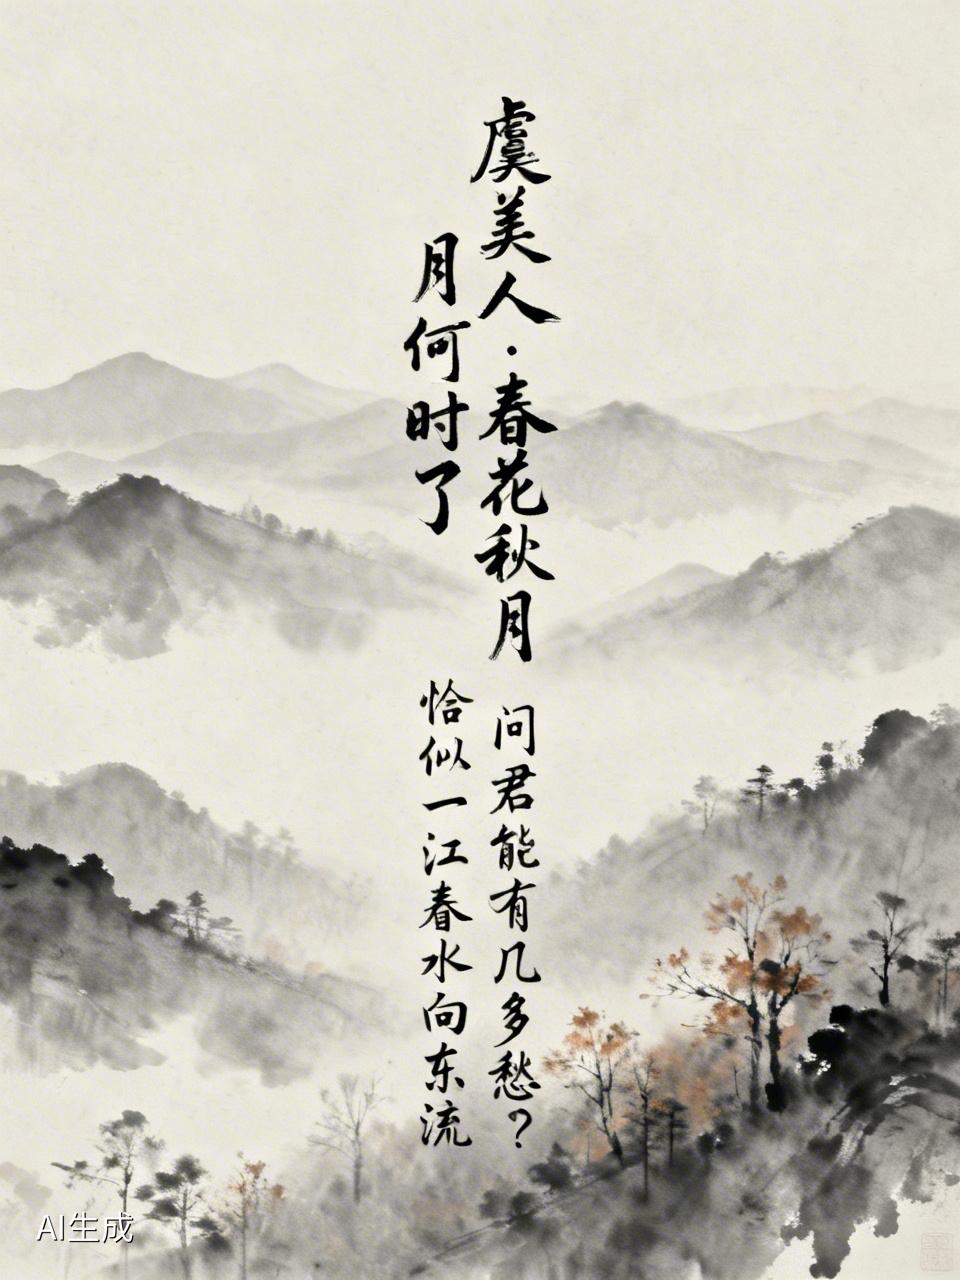 虞美人·春花秋月
月何时了
问君能有几多愁？
恰似一江春水向东流
AI生成